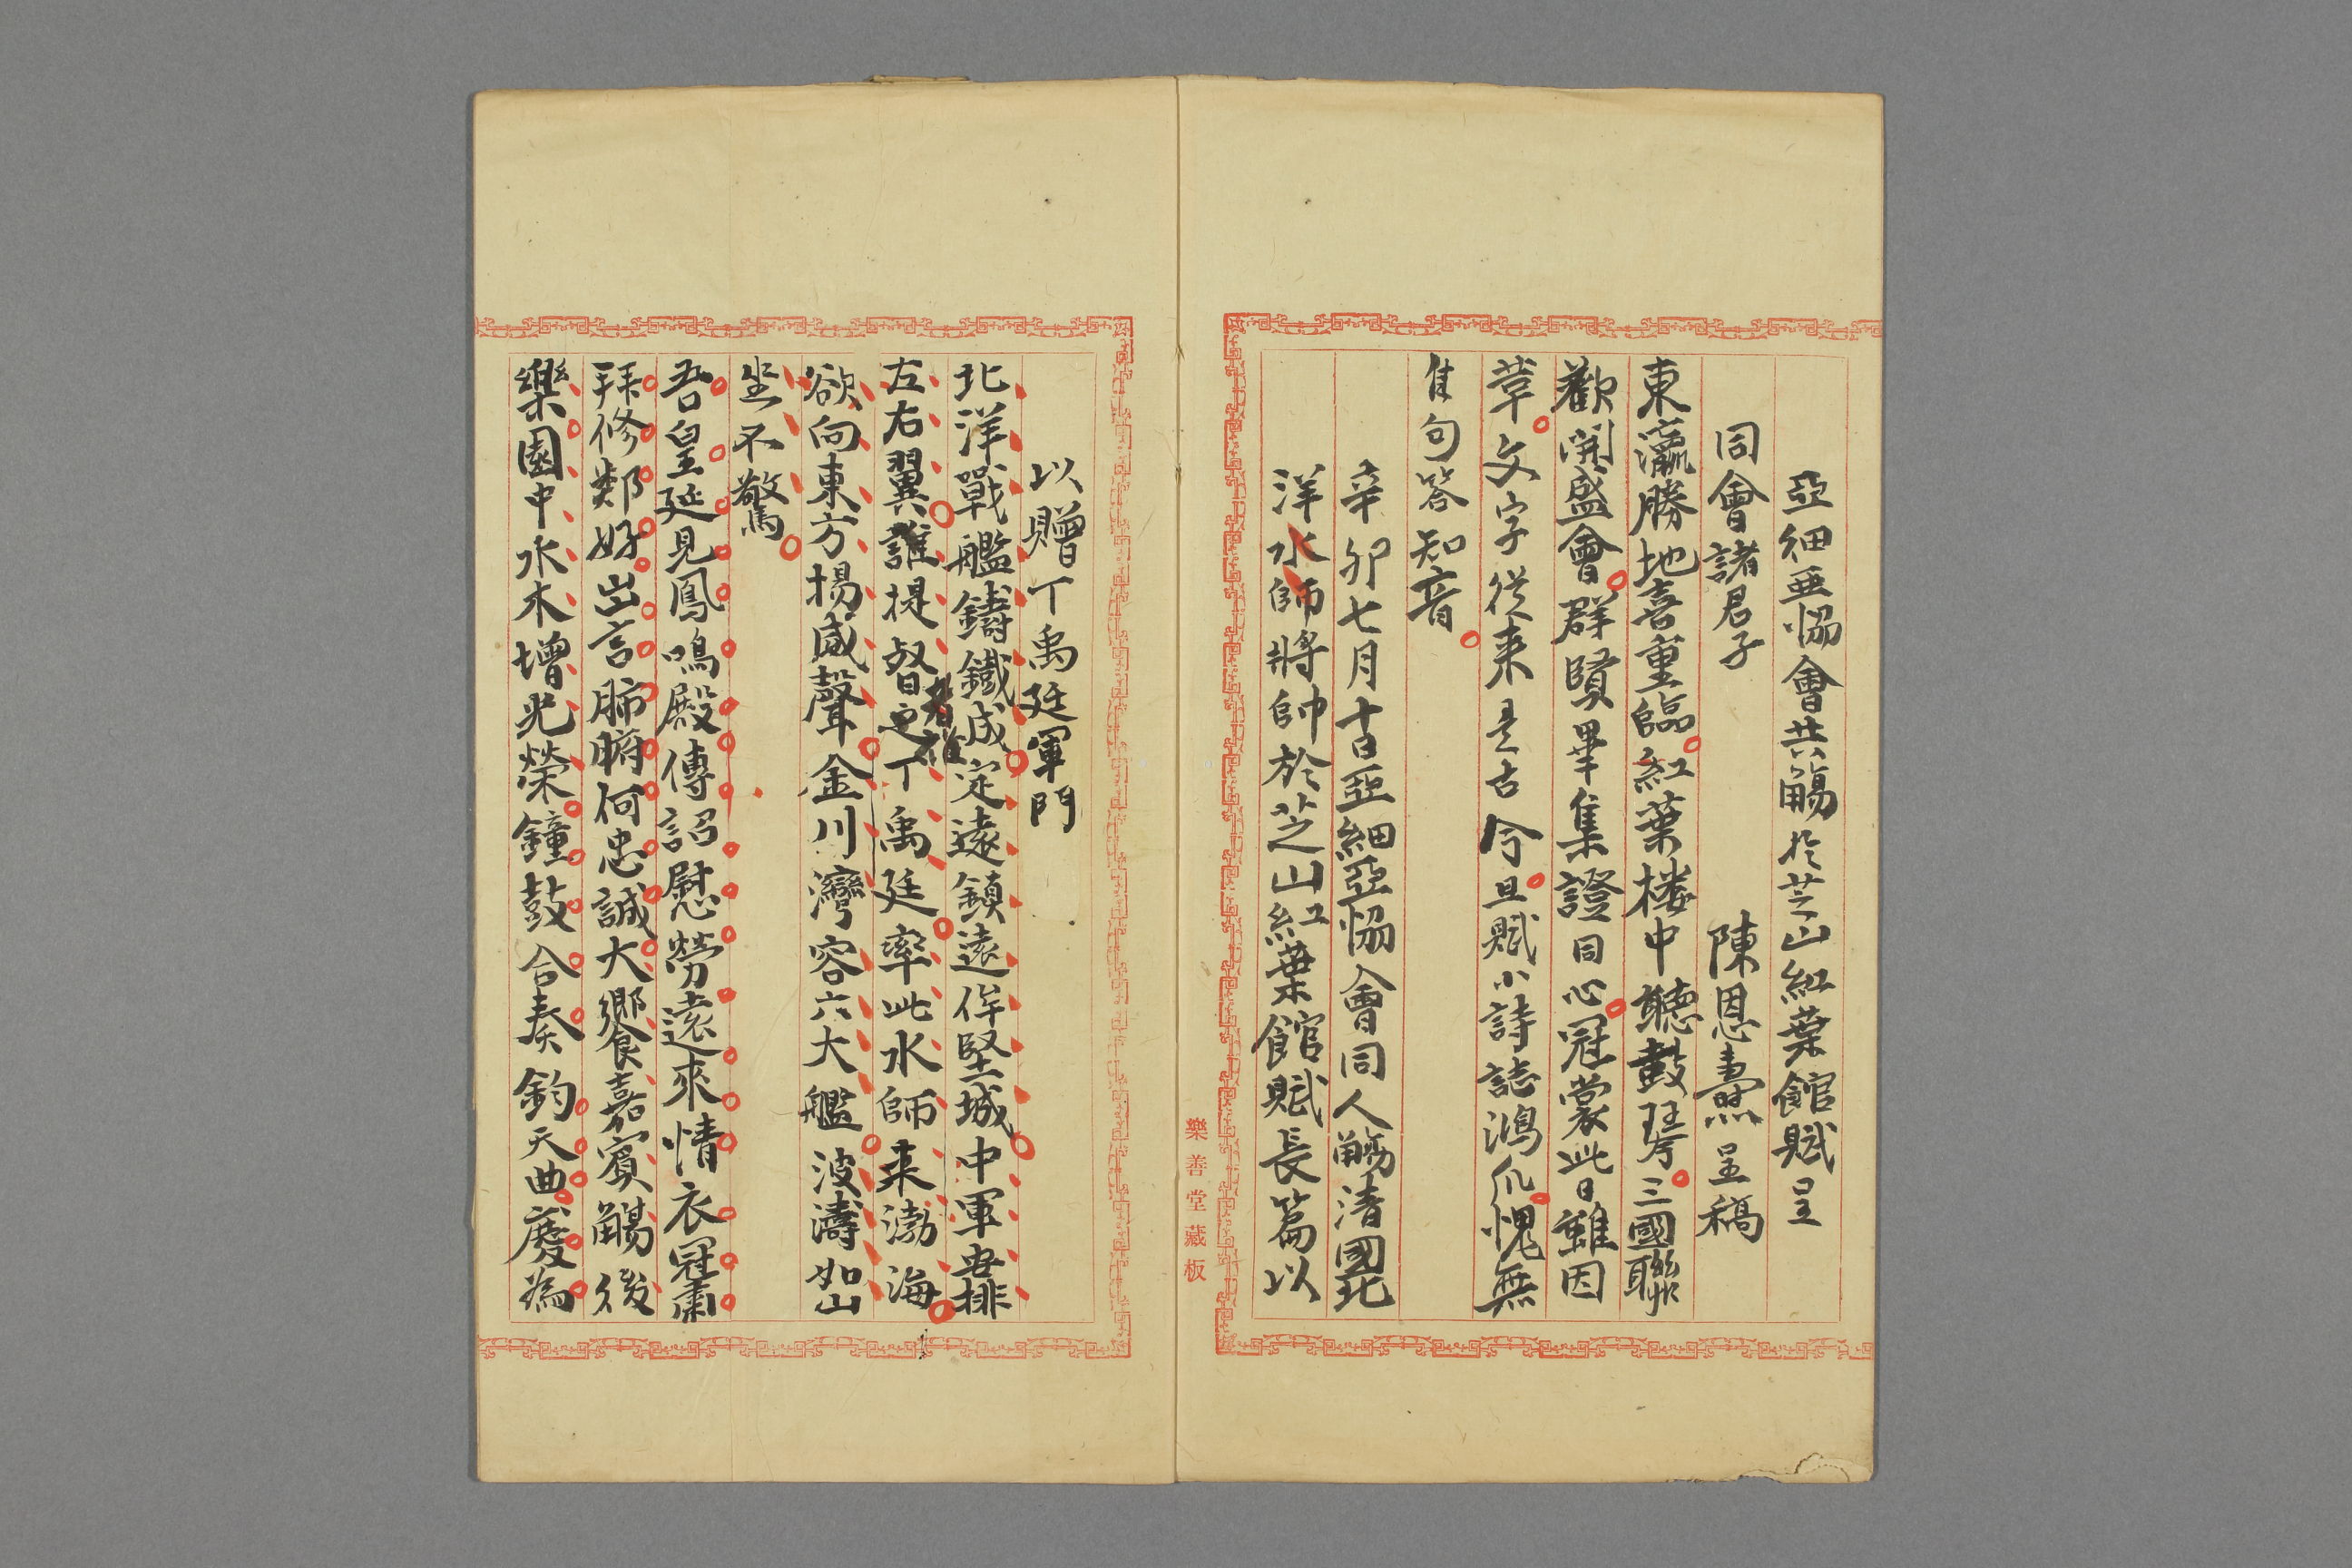 亞細亜恊會共觴於芝山紅葉館賦呈
同會諸君子
陳恩燾呈稿
東瀛勝地喜重臨紅葉楼中聽鼓琴三國聯
歡開盛會群賢畢集證同心冠裳此日雖因
革文字從来是古今且賦小詩誌鴻爪愧無
隹句答知音
辛卯七月十一日亞細亞恊會同人觴清國北
洋水師將帥於芝山紅葉館賦長篇以
樂善堂藏板
以贈丁禹廷軍門
北洋戰艦鑄鐵成定遠鎮遠侔堅城中軍安排
左右翼誰提督之丁禹廷率此水師来渤海
者誰
欲向東方揚威聲金川灣容六大艦波濤如山
坐不驚
吾皇延見鳳鳴殿傳詔慰勞遠來情衣冠肅
拜修鄰好出言肺腑何忠誠大饗嘉賓觴後
樂園中水木增光榮鐘鼓合奏鈞天曲慶為